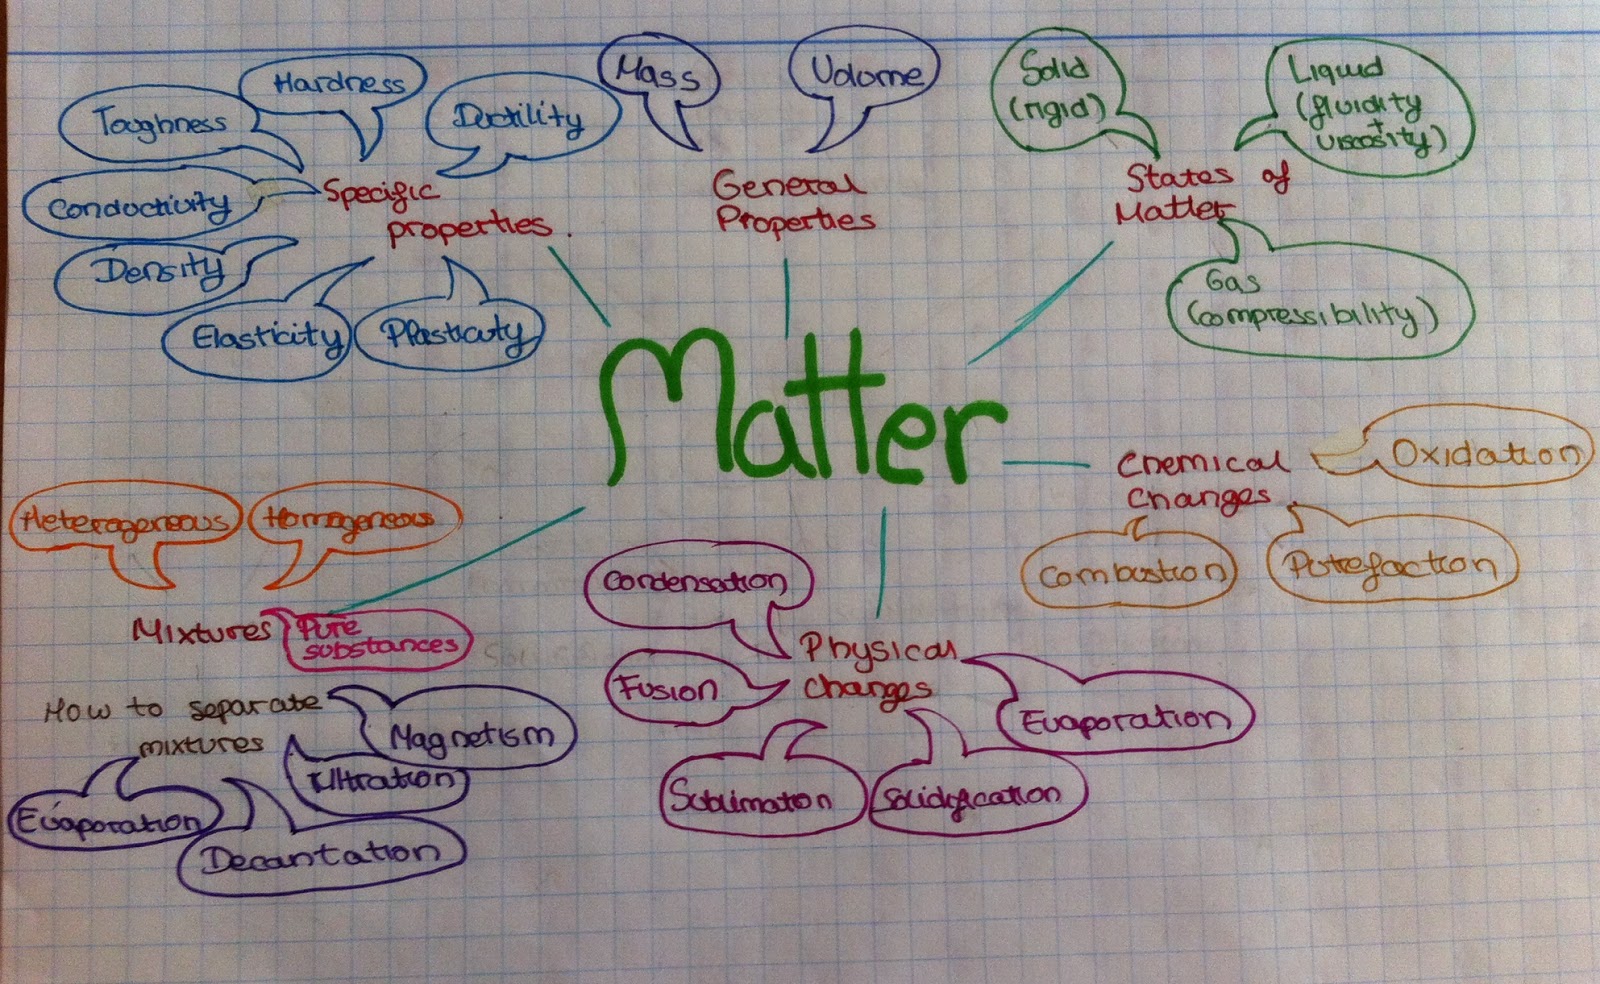 Hardness
Toughness
Ductility
Conductivity
Density
Elasticity
Plasticity
Specific
properties.
Mass
Volume
General
Properties
Solid
(rigid)
Liquid
(fluidity
+
viscosity)
States of
Matter
Gas
(compressibility)
Matter
Chemical
changes
Oxidation
Combustion
Putrefaction
Heterogeneous
Homogeneous
Mixtures
Pure
substances
How to separate
mixtures
Magnetism
Filtration
Evaporation
Decantation
Condensation
Physical
changes
Fusion
Evaporation
Sublimation
Solidification